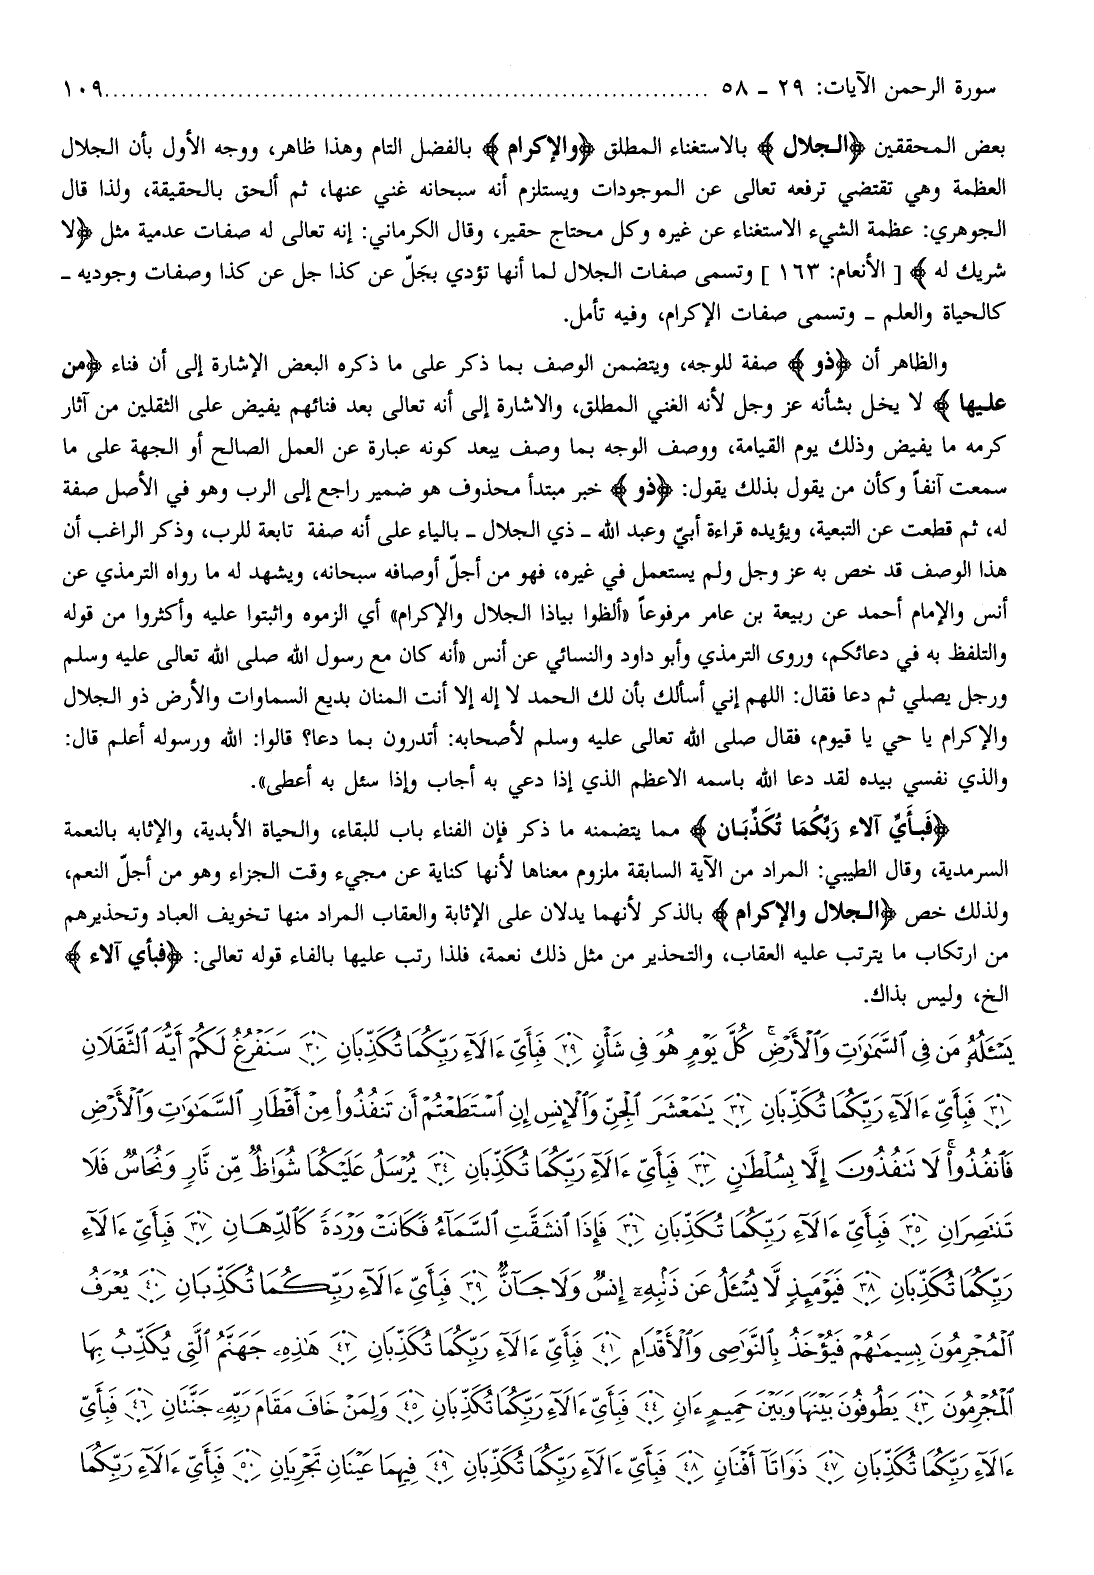 سورة الرحمن الآيات: ٢٩ ـ ٥٨ ........................................................................ ١٠٩
بعض المحققين ﴿الجلال﴾ بالاستغناء المطلق ﴿والإكرام﴾ بالفضل التام وهذا ظاهر، ووجه الأول بأن الجلال
العظمة وهي تقتضي ترفعه تعالى عن الموجودات ويستلزم أنه سبحانه غني عنها، ثم ألحق بالحقيقة، ولذا قال
الجوهري: عظمة الشيء الاستغناء عن غيره وكل محتاج حقير، وقال الكرماني: إنه تعالى له صفات عدمية مثل ﴿لا
شريك له﴾ [ الأنعام: ١٦٣ ] وتسمى صفات الجلال لما أنها تؤدي بجَلّ عن كذا جل عن كذا وصفات وجوديه ـ
كالحياة والعلم ـ وتسمى صفات الإكرام، وفيه تأمل.
والظاهر أن ﴿ذو﴾ صفة للوجه، ويتضمن الوصف بما ذكر على ما ذكره البعض الإشارة إلى أن فناء ﴿من
عليها﴾ لا يخل بشأنه عز وجل لأنه الغني المطلق، والاشارة إلى أنه تعالى بعد فنائهم يفيض على الثقلين من آثار
كرمه ما يفيض وذلك يوم القيامة، ووصف الوجه بما وصف يبعد كونه عبارة عن العمل الصالح أو الجهة على ما
سمعت آنفاً وكأن من يقول بذلك يقول: ﴿ذو﴾ خبر مبتدأ محذوف هو ضمير راجع إلى الرب وهو في الأصل صفة
له، ثم قطعت عن التبعية، ويؤيده قراءة أبيّ وعبد الله ـ ذي الجلال ـ بالياء على أنه صفة تابعة للرب، وذكر الراغب أن
هذا الوصف قد خص به عز وجل ولم يستعمل في غيره، فهو من أجلّ أوصافه سبحانه، ويشهد له ما رواه الترمذي عن
أنس والإمام أحمد عن ربيعة بن عامر مرفوعاً «ألظوا بياذا الجلال والإكرام» أي الزموه واثبتوا عليه وأكثروا من قوله
والتلفظ به في دعائكم، وروى الترمذي وأبو داود والنسائي عن أنس «أنه كان مع رسول الله صلى الله تعالى عليه وسلم
ورجل يصلي ثم دعا فقال: اللهم إني أسألك بأن لك الحمد لا إله إلا أنت المنان بديع السماوات والأرض ذو الجلال
والإكرام يا حي يا قيوم، فقال صلى الله تعالى عليه وسلم لأصحابه: أتدرون بما دعا؟ قالوا: الله ورسوله أعلم قال:
والذي نفسي بيده لقد دعا الله باسمه الاعظم الذي إذا دعي به أجاب وإذا سئل به أعطى».
﴿فَبأيِّ آلاء رَبِّكُمَا تُكَذِّبَان﴾ مما يتضمنه ما ذكر فإن الفناء باب للبقاء، والحياة الأبدية، والإثابه بالنعمة
السرمدية، وقال الطيبي: المراد من الآية السابقة ملزوم معناها لأنها كناية عن مجيء وقت الجزاء وهو من أجلّ النعم،
ولذلك خص ﴿الجلال والإكرام﴾ بالذكر لأنهما يدلان على الإثابة والعقاب المراد منها تخويف العباد وتحذيرهم
من ارتكاب ما يترتب عليه العقاب، والتحذير من مثل ذلك نعمة، فلذا رتب عليها بالفاء قوله تعالى: ﴿فبأي آلاء﴾
الخ، وليس بذاك.
يَسْـَٔلُهُۥ مَن فِى ٱلسَّمَٰوَٰتِ وَٱلْأَرْضِ ۚ كُلَّ يَوْمٍ هُوَ فِى شَأْنٍ ٢٩ فَبِأَىِّ ءَالَآءِ رَبِّكُمَا تُكَذِّبَانِ ٣٠ سَنَفْرُغُ لَكُمْ أَيُّهَ ٱلثَّقَلَانِ
٣١ فَبِأَىِّ ءَالَآءِ رَبِّكُمَا تُكَذِّبَانِ ٣٢ يَٰمَعْشَرَ ٱلْجِنِّ وَٱلْإِنسِ إِنِ ٱسْتَطَعْتُمْ أَن تَنفُذُوا۟ مِنْ أَقْطَارِ ٱلسَّمَٰوَٰتِ وَٱلْأَرْضِ
فَٱنفُذُوا۟ ۚ لَا تَنفُذُونَ إِلَّا بِسُلْطَٰنٍ ٣٣ فَبِأَىِّ ءَالَآءِ رَبِّكُمَا تُكَذِّبَانِ ٣٤ يُرْسَلُ عَلَيْكُمَا شُوَاظٌ مِّن نَّارٍ وَنُحَاسٌ فَلَا
تَنتَصِرَانِ ٣٥ فَبِأَىِّ ءَالَآءِ رَبِّكُمَا تُكَذِّبَانِ ٣٦ فَإِذَا ٱنشَقَّتِ ٱلسَّمَآءُ فَكَانَتْ وَرْدَةً كَٱلدِّهَانِ ٣٧ فَبِأَىِّ ءَالَآءِ
رَبِّكُمَا تُكَذِّبَانِ ٣٨ فَيَوْمَئِذٍ لَّا يُسْـَٔلُ عَن ذَنۢبِهِۦٓ إِنسٌ وَلَا جَآنٌّ ٣٩ فَبِأَىِّ ءَالَآءِ رَبِّكُمَا تُكَذِّبَانِ ٤٠ يُعْرَفُ
ٱلْمُجْرِمُونَ بِسِيمَٰهُمْ فَيُؤْخَذُ بِٱلنَّوَٰصِى وَٱلْأَقْدَامِ ٤١ فَبِأَىِّ ءَالَآءِ رَبِّكُمَا تُكَذِّبَانِ ٤٢ هَٰذِهِۦ جَهَنَّمُ ٱلَّتِى يُكَذِّبُ بِهَا
ٱلْمُجْرِمُونَ ٤٣ يَطُوفُونَ بَيْنَهَا وَبَيْنَ حَمِيمٍ ءَانٍ ٤٤ فَبِأَىِّ ءَالَآءِ رَبِّكُمَا تُكَذِّبَانِ ٤٥ وَلِمَنْ خَافَ مَقَامَ رَبِّهِۦ جَنَّتَانِ ٤٦ فَبِأَىِّ
ءَالَآءِ رَبِّكُمَا تُكَذِّبَانِ ٤٧ ذَوَاتَآ أَفْنَانٍ ٤٨ فَبِأَىِّ ءَالَآءِ رَبِّكُمَا تُكَذِّبَانِ ٤٩ فِيهِمَا عَيْنَانِ تَجْرِيَانِ ٥٠ فَبِأَىِّ ءَالَآءِ رَبِّكُمَا